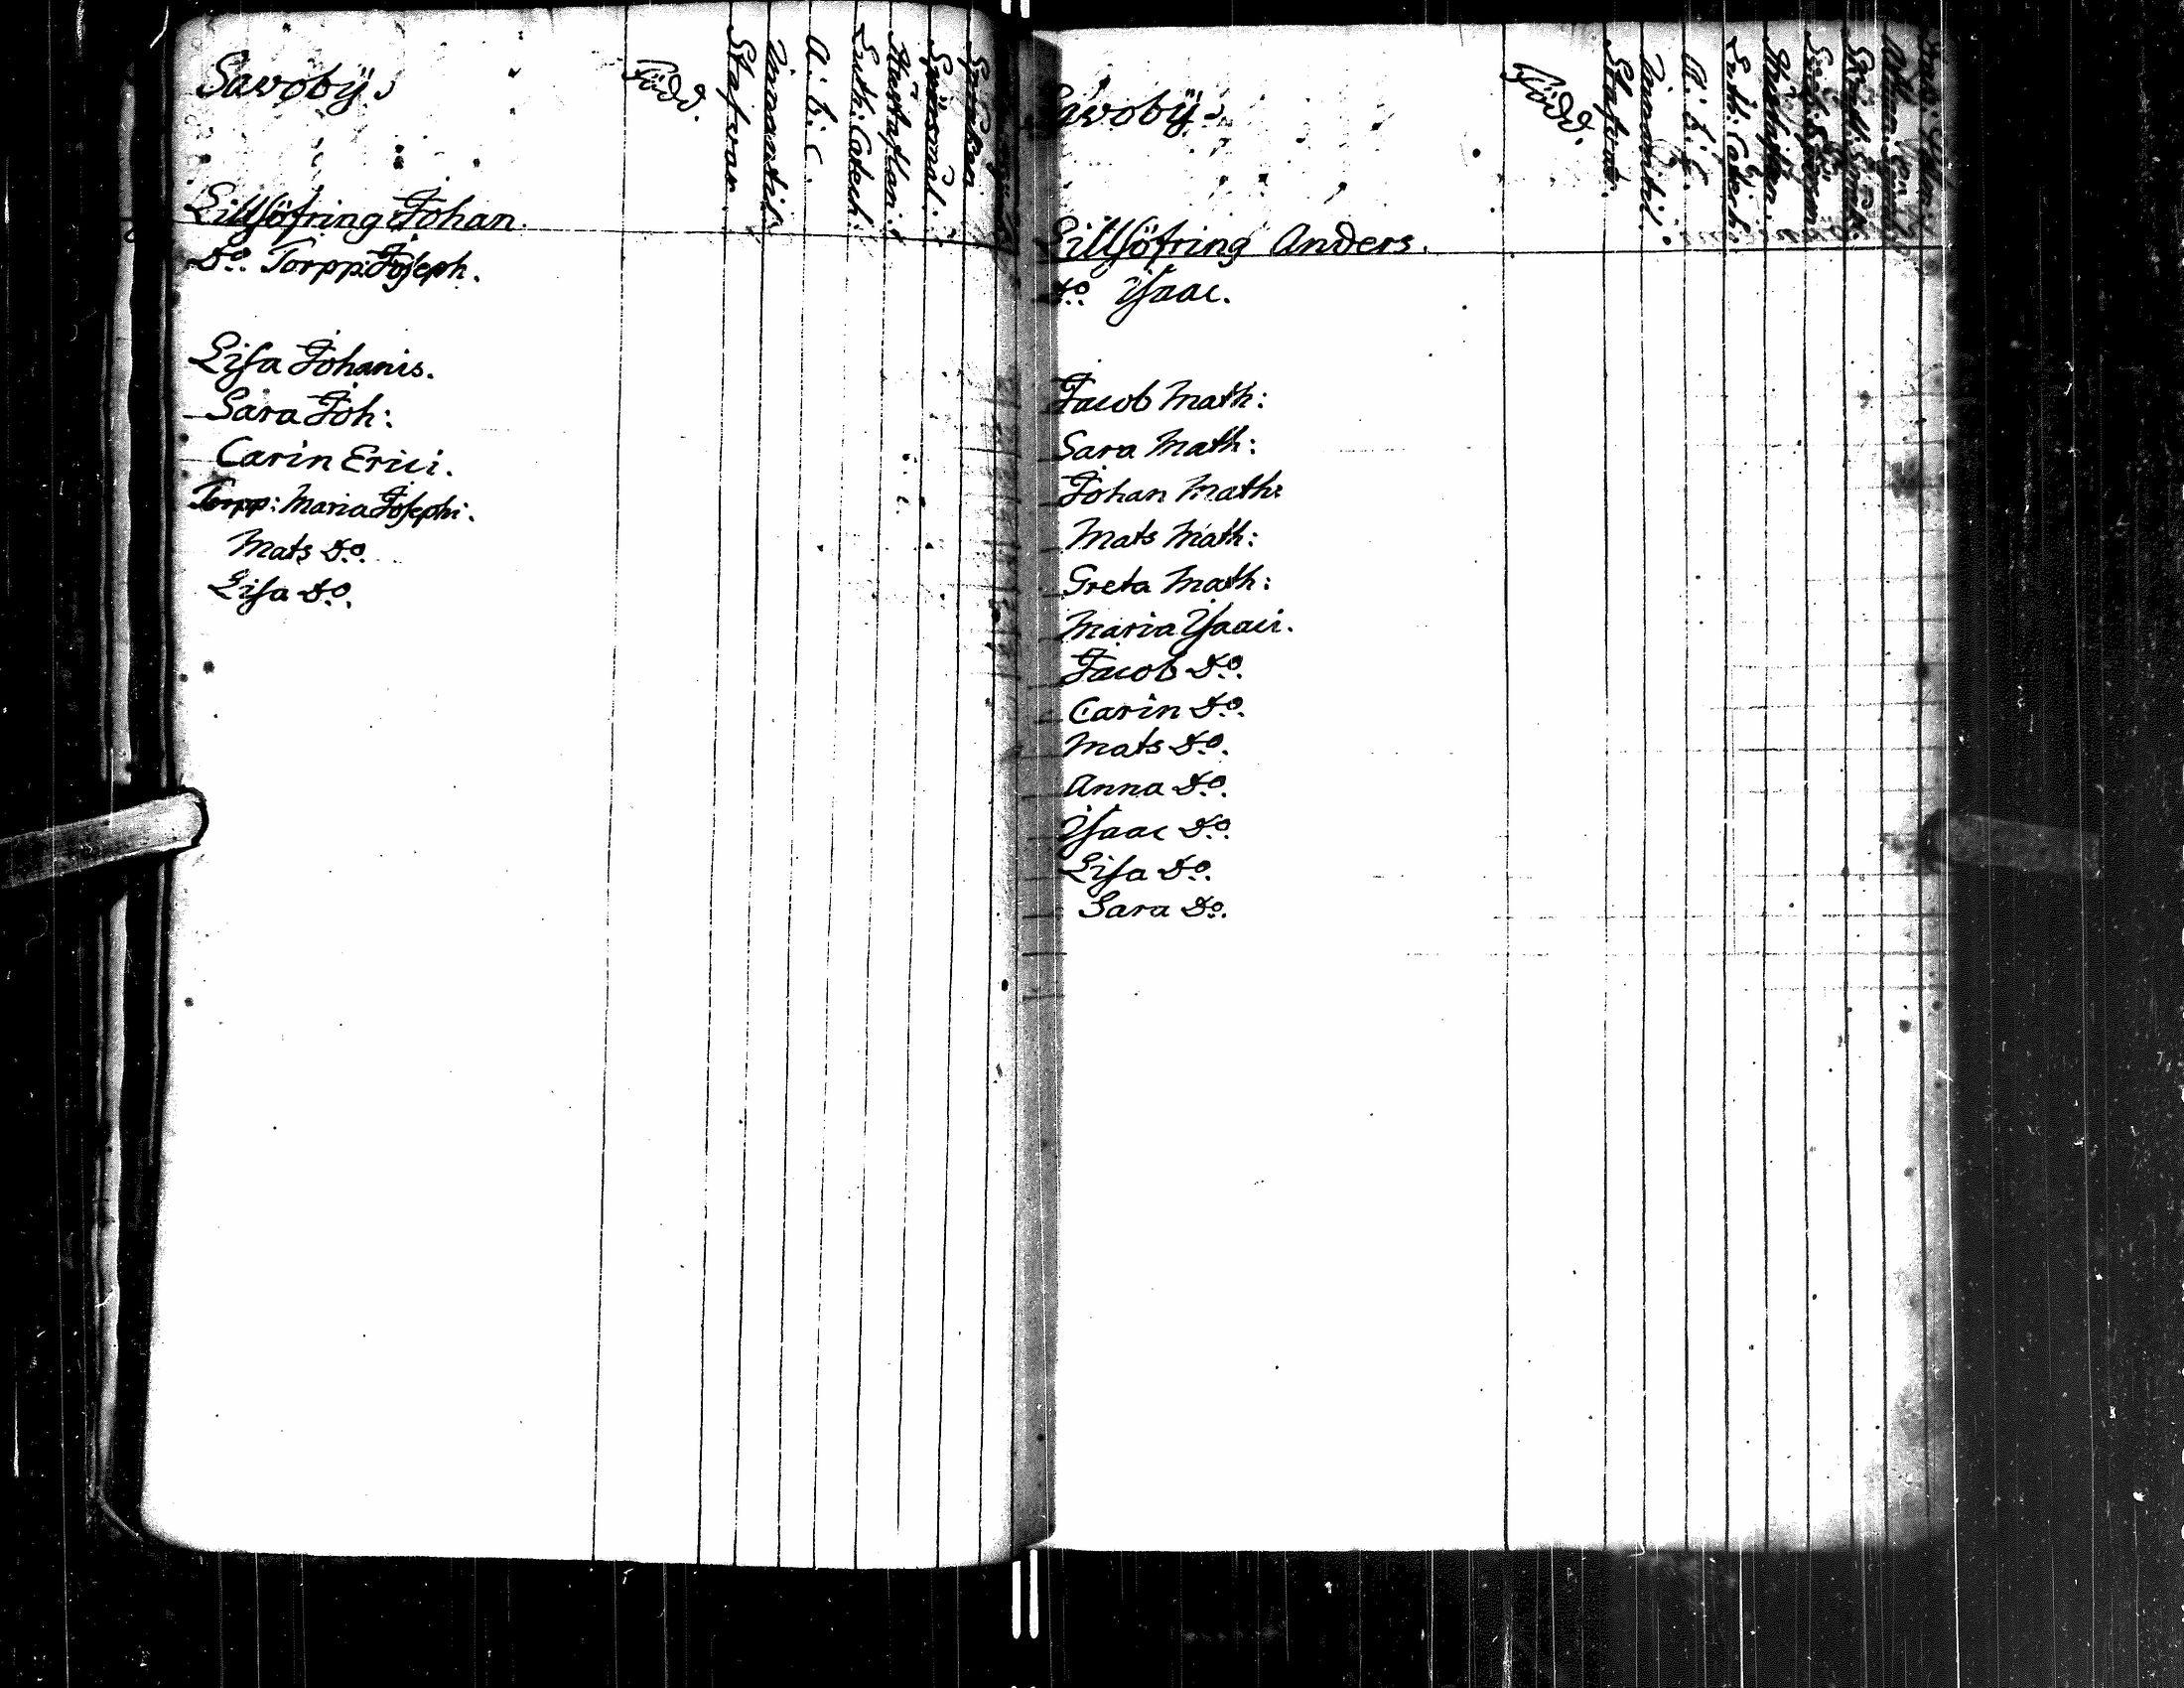 Savoby.
Född.
Stafvar.
Innantil.
A. b. c.
Luth: Catech:
Hustaflan.
Spörsmål.
Lillsöfring Johan.
Do. Torpp: Joseph.
Lisa Johanis.
Sara Joh:
Carin Erici.
Torpp: Maria Josephi.
Mats Do.
Lisa Do.
Savoby.
Född.
Stafvar.
Innantil.
A. b. c.
Luth: Catech:
Hustaflan.
Lillsöfring Anders.
Do Isaac.
Jacob Math:
Sara Math:
Johan Math:
Mats Math:
Greta Math:
Maria Isaaci.
Jacob Do.
Carin Do.
Mats Do.
Anna Do.
Isaac Do.
Lisa Do.
Sara Do.